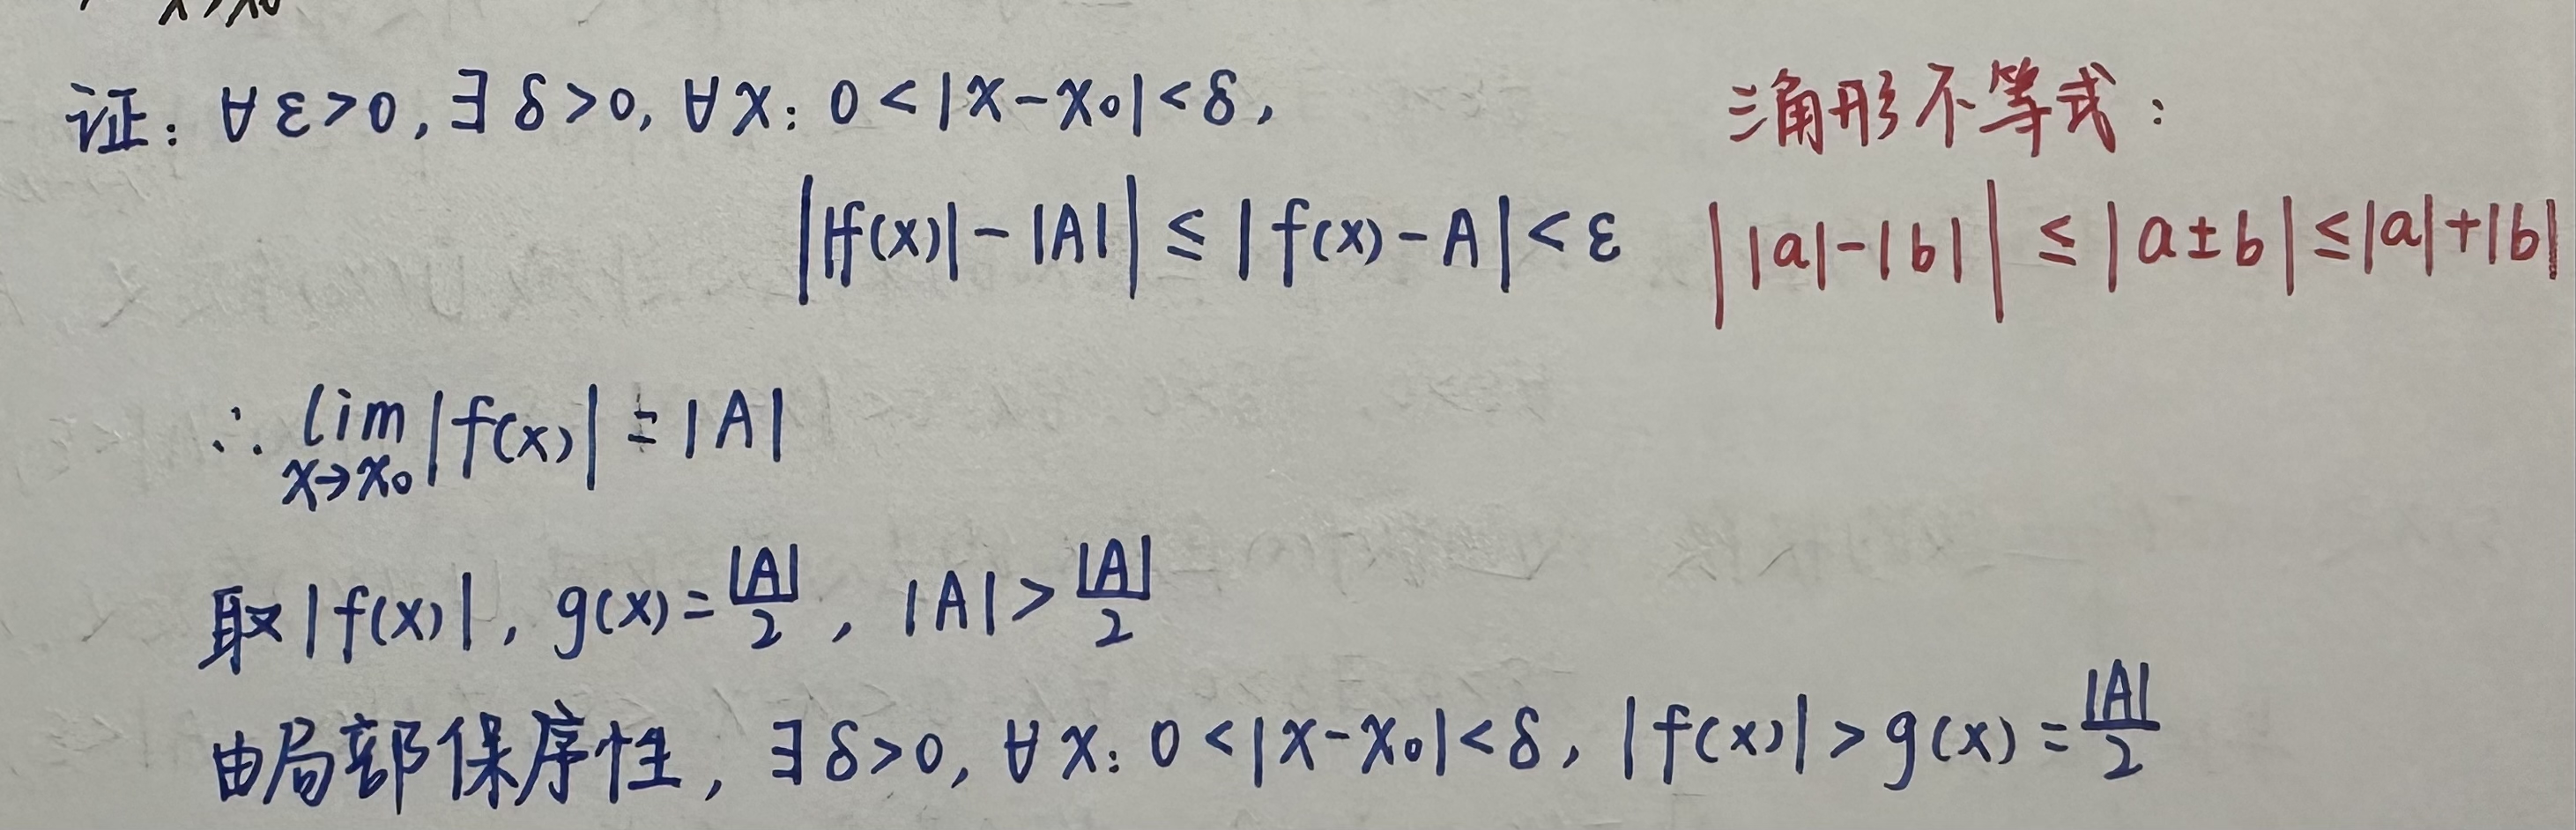 证: ∀ε>0, ∃ δ>0, ∀x: 0<|x-x₀|<δ,
||f(x)|-|A|| ≤ |f(x)-A| < ε
三角形不等式:
||a|-|b|| ≤ |a±b| ≤ |a|+|b|
∴ lim_{x→x₀} |f(x)| = |A|
取|f(x)|, g(x)=|A|/2, |A|>|A|/2
由局部保序性, ∃δ>0, ∀x: 0<|x-x₀|<δ, |f(x)|>g(x)=|A|/2